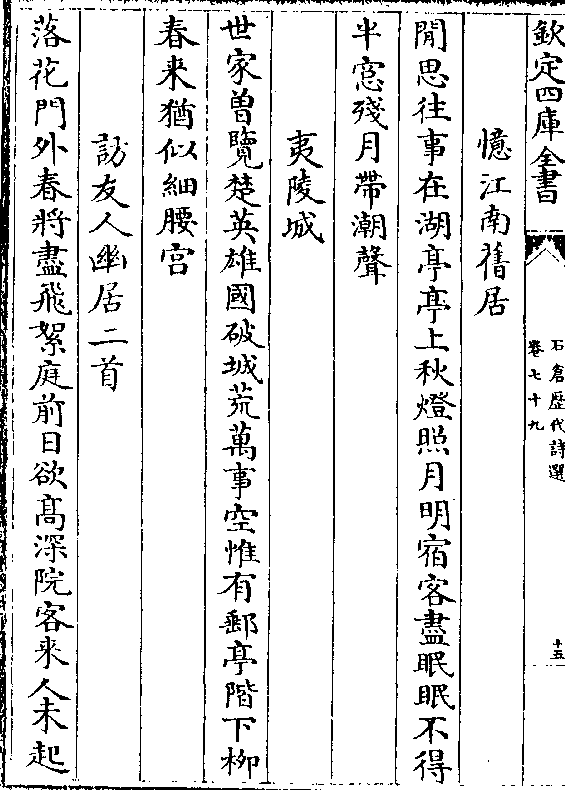 欽定四庫全書
石倉歷代詩選
卷七十九
十五
憶江南舊居
閒思往事在湖亭亭上秋燈照月明宿客盡眠眠不得
半窓殘月帶潮聲
夷陵城
世家曽覽楚英雄國破城荒萬事空惟有郵亭階下栁
春来猶似細腰宫
訪友人幽居二首
落花門外春將盡飛絮庭前日欲髙深院客来人未起